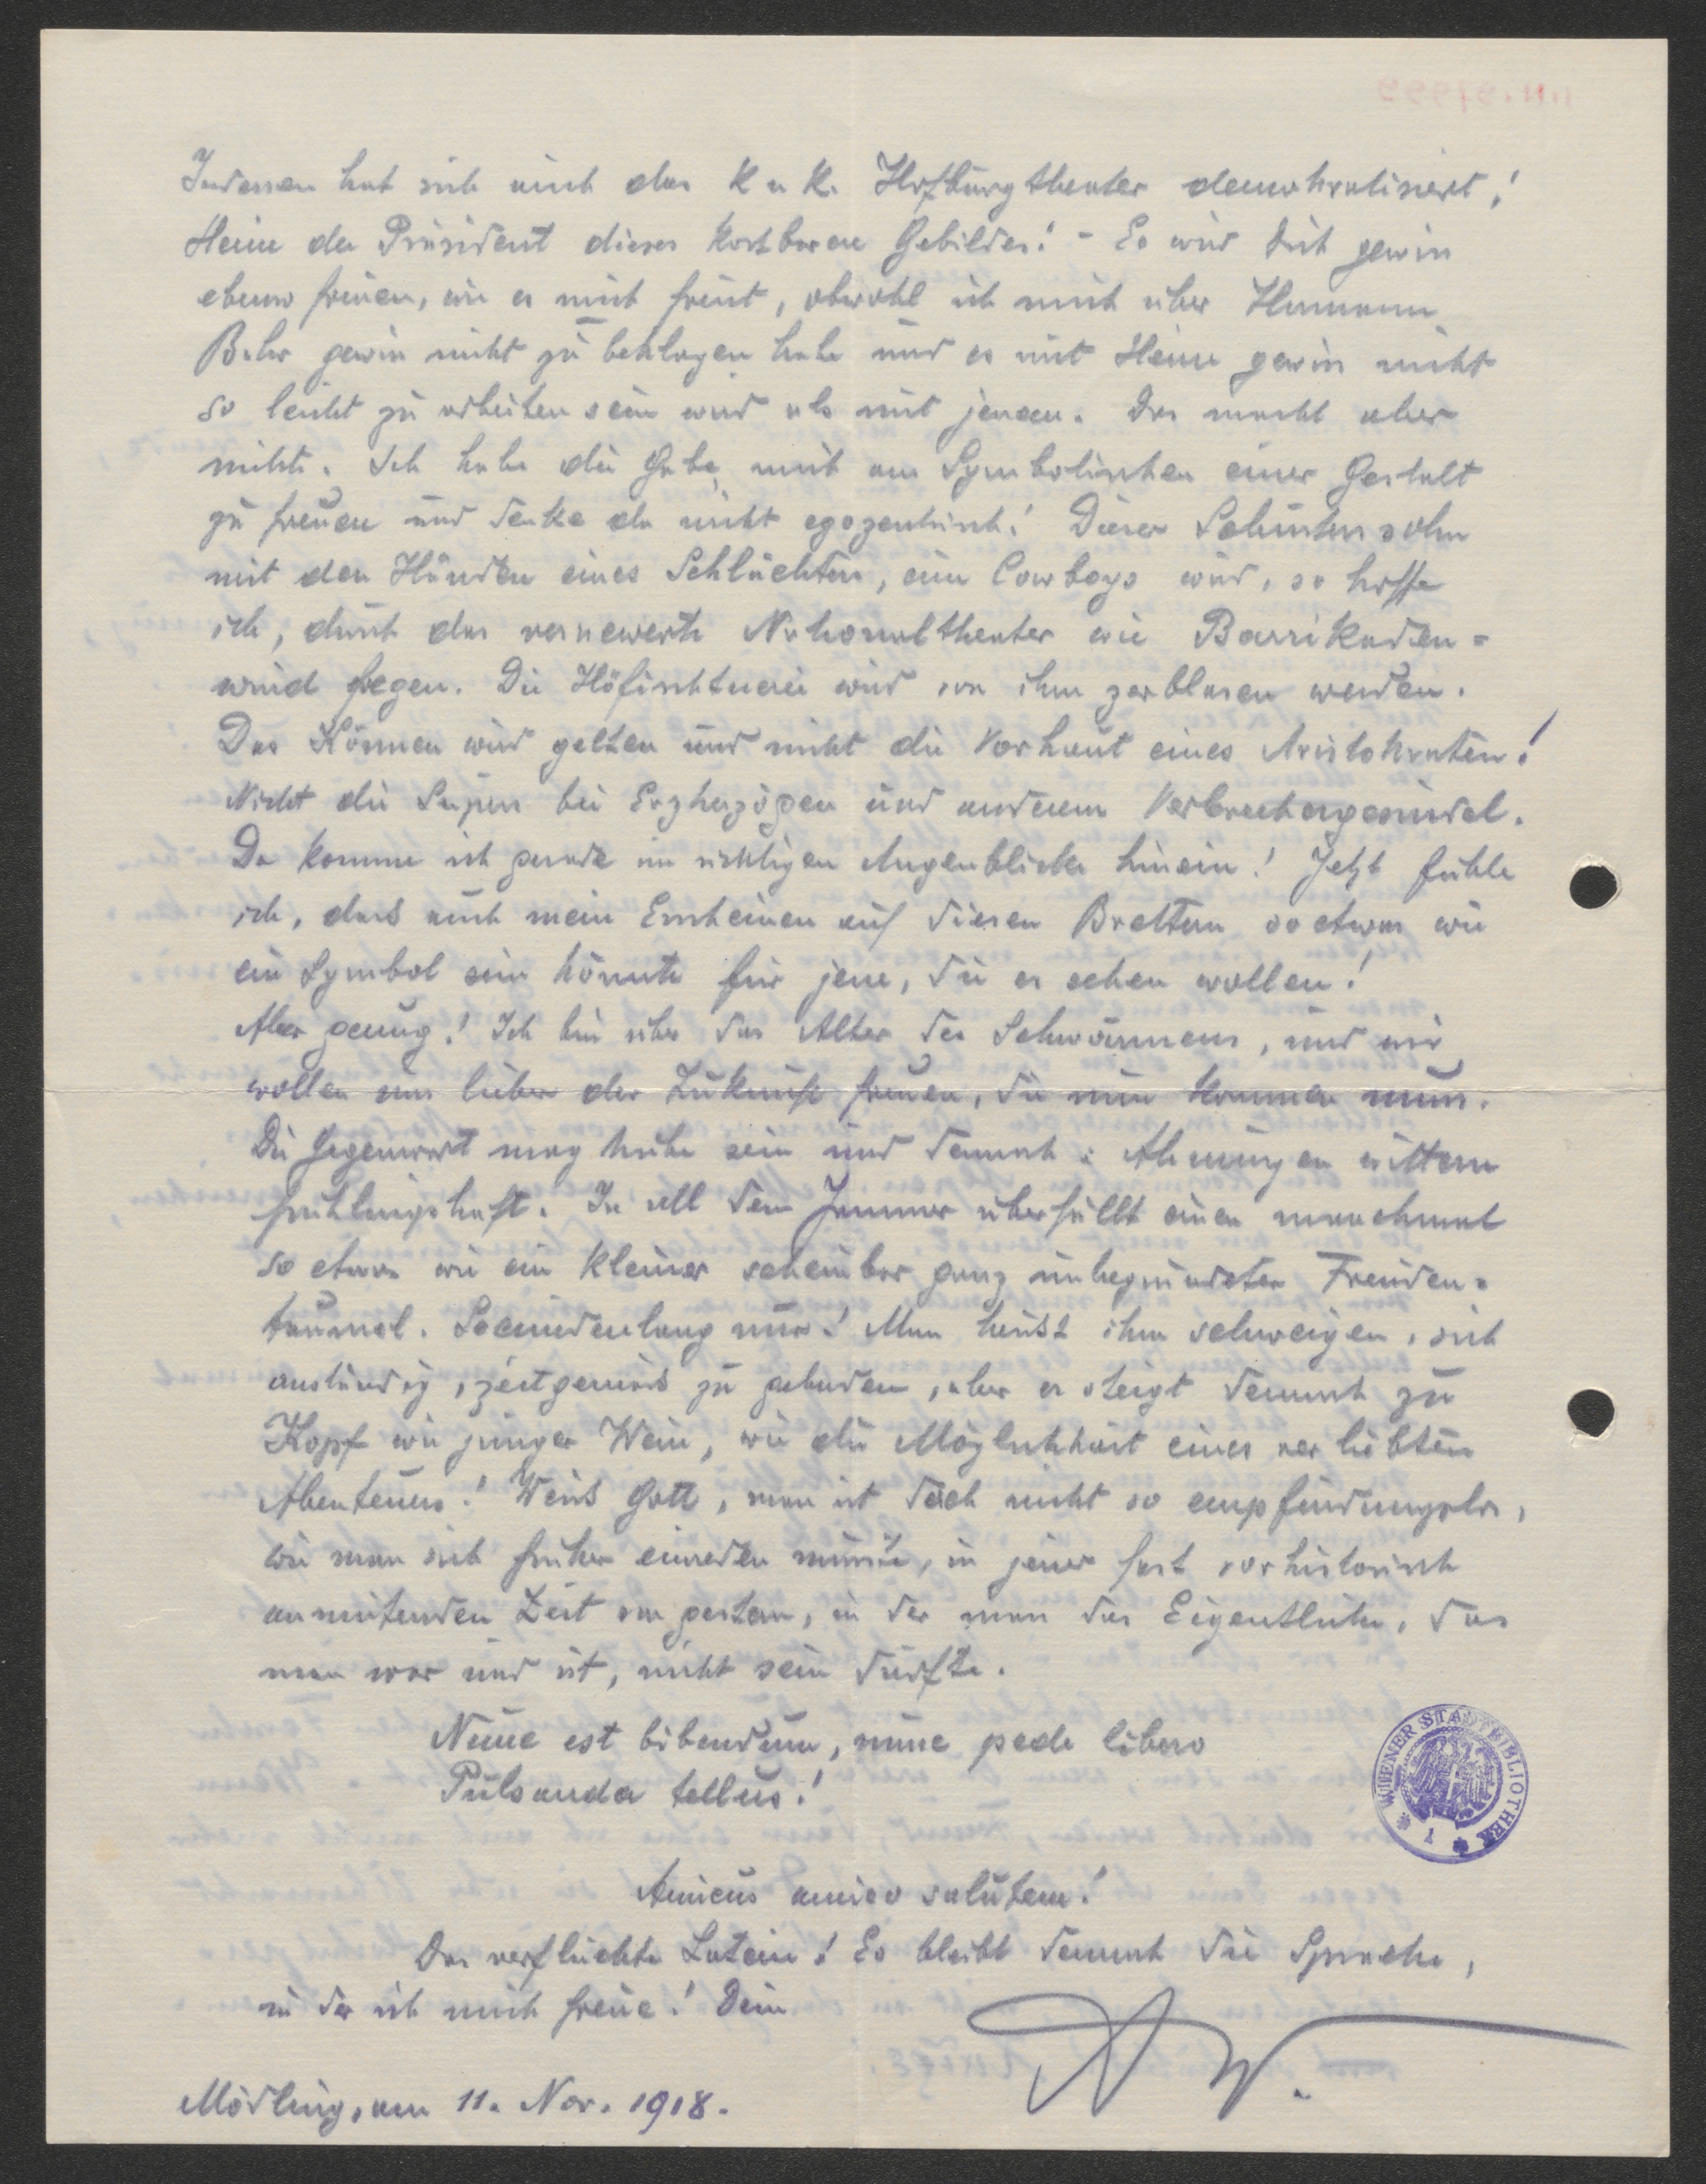 Indessen hat sich auch das K u K. Hofburgtheater demokratisiert!
Heine der Präsident dieses kostbaren Gebildes! - Es wird Dich gewiss
ebenso freuen, wie es mich freut, obwohl ich mich über Hermann
Bahr gewiss nicht zu beklagen habe und es mit Heine gewiss nicht
so leicht zu arbeiten sein wird als mit jenem. Das macht aber
nichts. Ich habe die Gabe mich am Symbolischen einer Gestalt
zu freuen und denke da nicht egozentrisch! Dieser Schusterssohn
mit den Händen eines Schlächters, eines Cowboys wird, so hoffe
ich, durch das vernewerte Nationaltheater wie Barrikaden=
wind fegen. Die Höfischtuerei wird von ihm zerblasen werden.
Das Können wird gelten und nicht die Vorhaut eines Aristokraten!
Nicht die Supers bei Erzherzögen und anderem Verbrechergesindel.
Da komme ich gerade im richtigen Augenblicke hinein! Jetzt fühle
ich, dass auch mein Erscheinen auf diesen Brettern so etwas wie
ein Symbol sein könnte für jene, die es sehen wollen!
Aber genug! Ich bin über das Alter des Schwärmens, und wir
wollen uns lieber der Zukunft freuen, die nun kommen muss.
Die Gegenwart mag trübe sein und dennoch: Ahnungen wittern
frühlingshaft. In all dem Jammer überfällt einen manchmal
so etwas wie ein kleiner scheinbar ganz unbegründeter Freuden=
taumel. Secundenlang nur! Man heisst ihm schweigen, sich
anständig, zeitgemäss zu gebaren, aber er steigt dennoch zu
Kopf wie junger Wein, wie die Möglichkeit eines verliebten
Abenteuers! Weiss Gott, man ist doch nicht so empfindungslos,
wie man sich früher einreden musste, in jener fast vorhistorisch
anmutenden Zeit von gestern, in der man das Eigentliche, das
man war und ist, nicht sein durfte.
Nunc est bibendum, nunc pede libero
Pulsanda tellus!
Amicus amico salutem!
Das verfluchte Latein! Es bleibt dennoch die Sprache,
in der ich mich freue! Dein
AW.
Mödling, am 11. Nov. 1918.
WIENER STADTBIBLIOTHEK